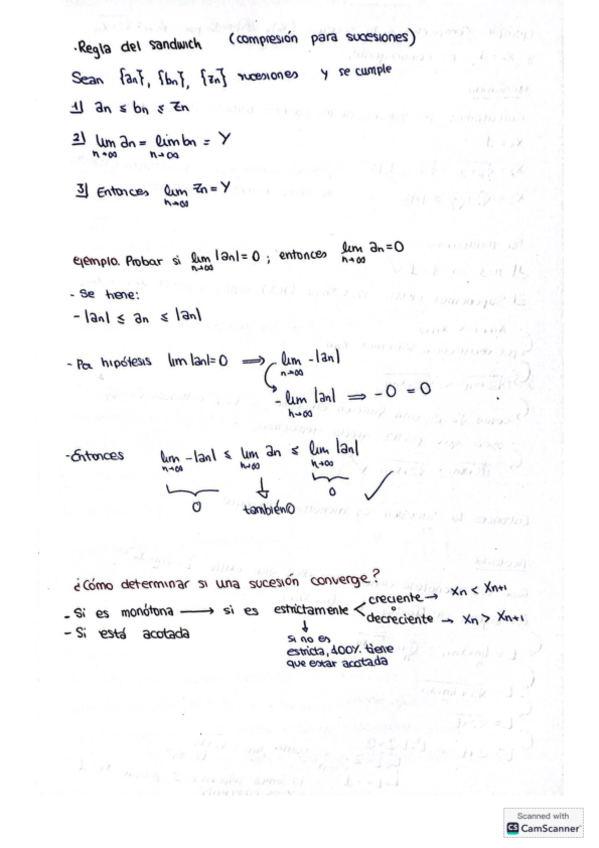 ·Regla del sandwich (compresión para sucesiones)
Sean {an}, {bn}, {zn} sucesiones y se cumple
1) an ≤ bn ≤ zn
2) lim an = lim bn = Y
n→∞ n→∞
3) Entonces lim zn = Y
n→∞
ejemplo. Probar si lim |an| = 0 ; entonces lim an = 0
n→∞ n→∞
- Se tiene:
- |an| ≤ an ≤ |an|
- Por hipótesis lim |an| = 0 ⟹ lim - |an|
n→∞
- lim |an| ⟹ - 0 = 0
n→∞
- Entonces lim - |an| ≤ lim an ≤ lim |an|
n→∞ n→∞ n→∞
0 también 0 0 ✓
¿Cómo determinar si una sucesión converge?
- Si es monótona → si es estrictamente < creciente → Xn < Xn+1
o
decreciente → Xn > Xn+1
- Si está acotada
↓
si no es
estricta, 100% tiene
que estar acotada
Scanned with
CS CamScanner